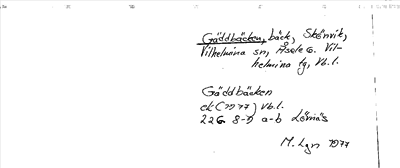 Gäddbäcken, bäck, Skönvik,
Vilhelmina sn, Åsele G. Vil-
helmina tg, Vb.l.
Gäddbäcken
ek (1977) Vb.l.
22G 8-9 a-b Lövnäs
M. Lgn 1977